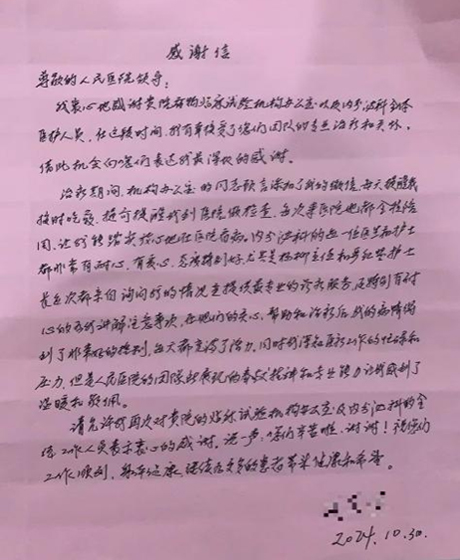 感谢信
尊敬的人民医院领导:
我衷心地感谢贵院药物临床试验机构办公室以及内分泌科全体
医护人员,在这段时间,我有幸接受了你们团队的专业治疗和关怀,
借此机会向你们表达我最深切的感谢。
治疗期间,机构办公室的同志就添加了我的微信,每天提醒我
按时吃药,提前提醒我到医院做检查,每次来医院她都全程陪
同,让我能踏实放心地在医院看病。内分泌科的每一位医生和护士
都非常有耐心,有爱心,态度特别好,尤其是杨柳主任和
长每次都亲自询问我的情况并提供最专业的诊疗服务,还特别有耐
心的为我讲解注意事项,在她们的关心、帮助和治疗后,我的病情得
到了非常好的控制,每天都充满了活力,同时我深知医疗工作的忙碌和
压力,但是人民医院的团队所展现的奉献精神和专业能力让我感到了
温暖和敬佩。
请允许我再次对贵院的临床试验机构办公室及内分泌科的全
体工作人员表示衷心的感谢。说一声,你们辛苦啦,谢谢!祝你们
工作顺利,身体健康,继续为更多的患者带来健康和希望。
2024.10.30.